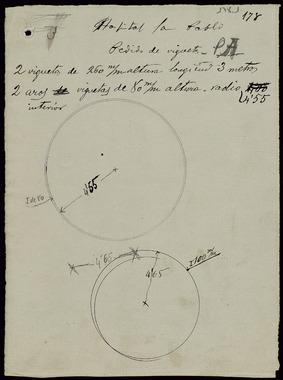 178
Hospital Sn Pablo
Pedido de viguetas - PA
2 viguetas de 260 m/m altura longitud 3 metros
2 aros de viguetas de 80 m/m altura - radio
interior
4'55
4'55
I de 80
4'65
4'65
I 100 m/m